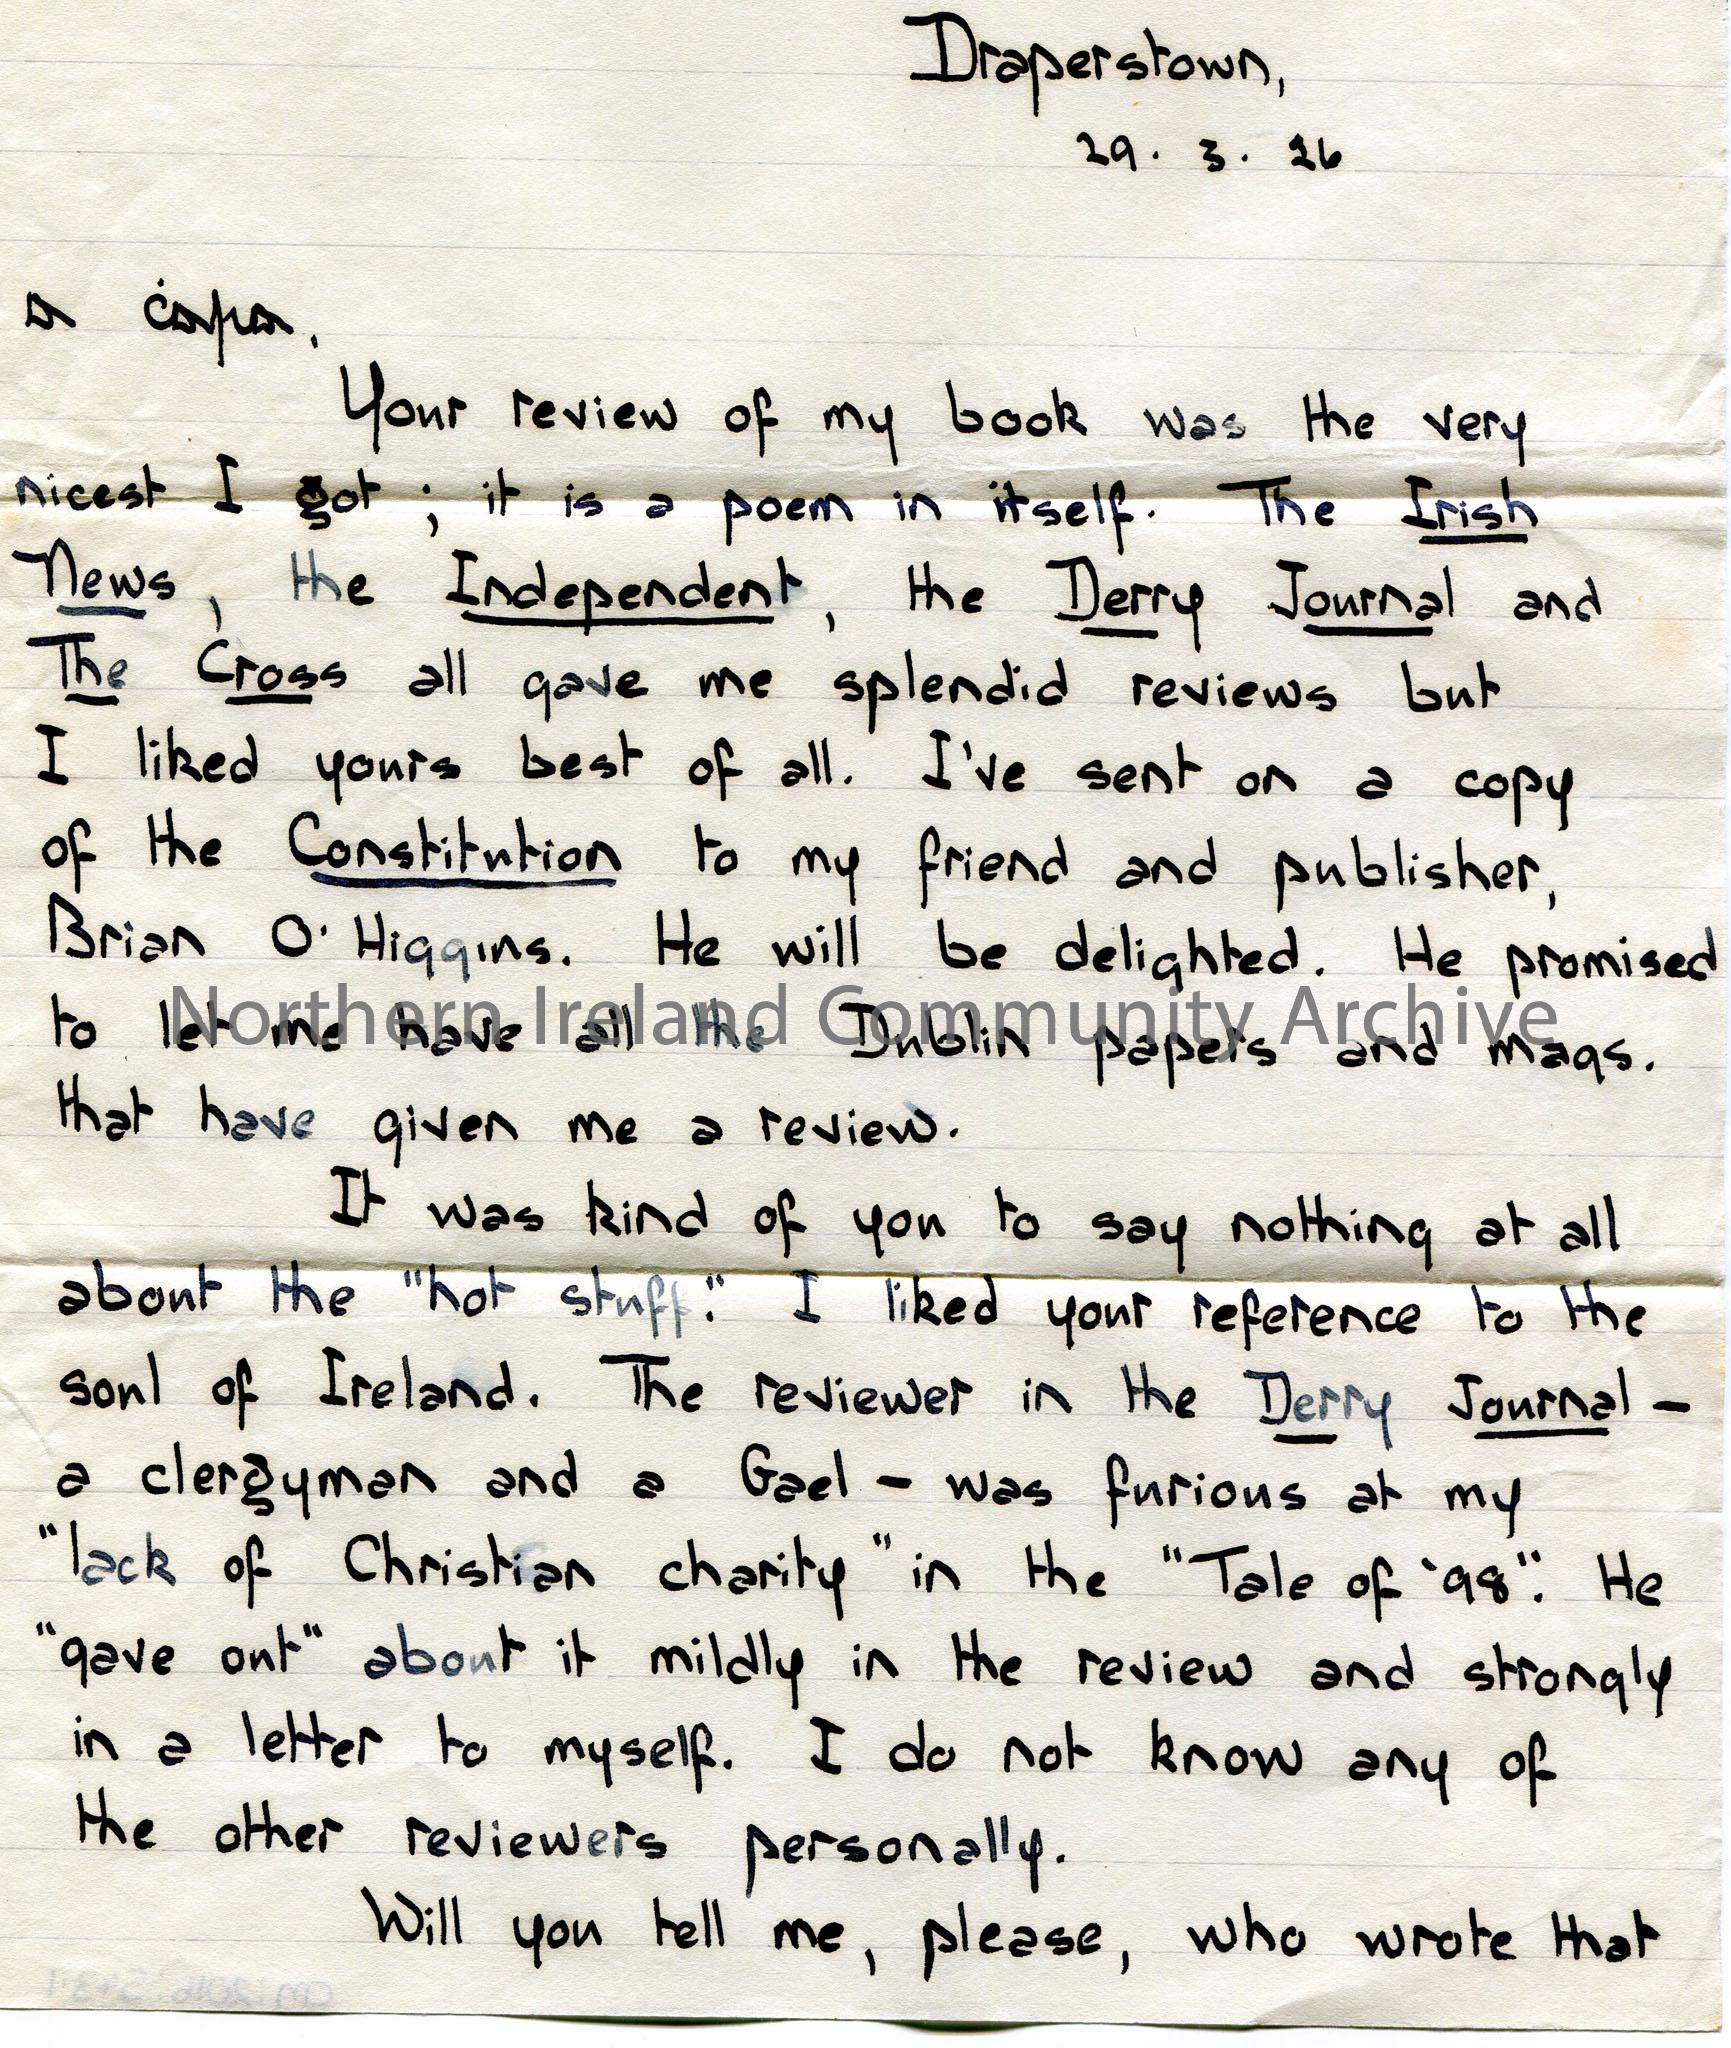 Draperstown,
29. 3. 26
a ċara,
Your review of my book was the very
nicest I got; it is a poem in itself. The Irish
News, the Independent, the Derry Journal and
The Cross all gave me splendid reviews but
I liked yours best of all. I've sent on a copy
of the Constitution to my friend and publisher,
Brian O'Higgins. He will be delighted. He promised
to let me have all the Dublin papers and mags.
Northern Ireland Community Archive
that have given me a review.
It was kind of you to say nothing at all
about the "hot stuff." I liked your reference to the
soul of Ireland. The reviewer in the Derry Journal –
a clergyman and a Gael – was furious at my
"lack of Christian charity" in the "Tale of '98". He
"gave out" about it mildly in the review and strongly
in a letter to myself. I do not know any of
the other reviewers personally.
Will you tell me, please, who wrote that